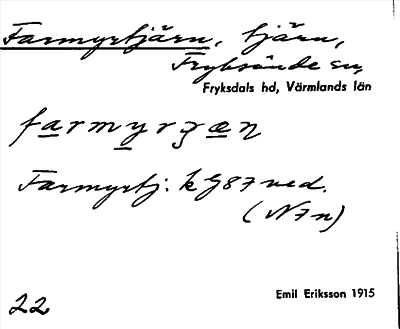 Farmyrtjärn, tjärn,
Fryksände sn,
Fryksdals hd, Värmlands län
farmyrʒæn
Farmyrtj: k G 87 ned.
(N 7 n)
22
Emil Eriksson 1915